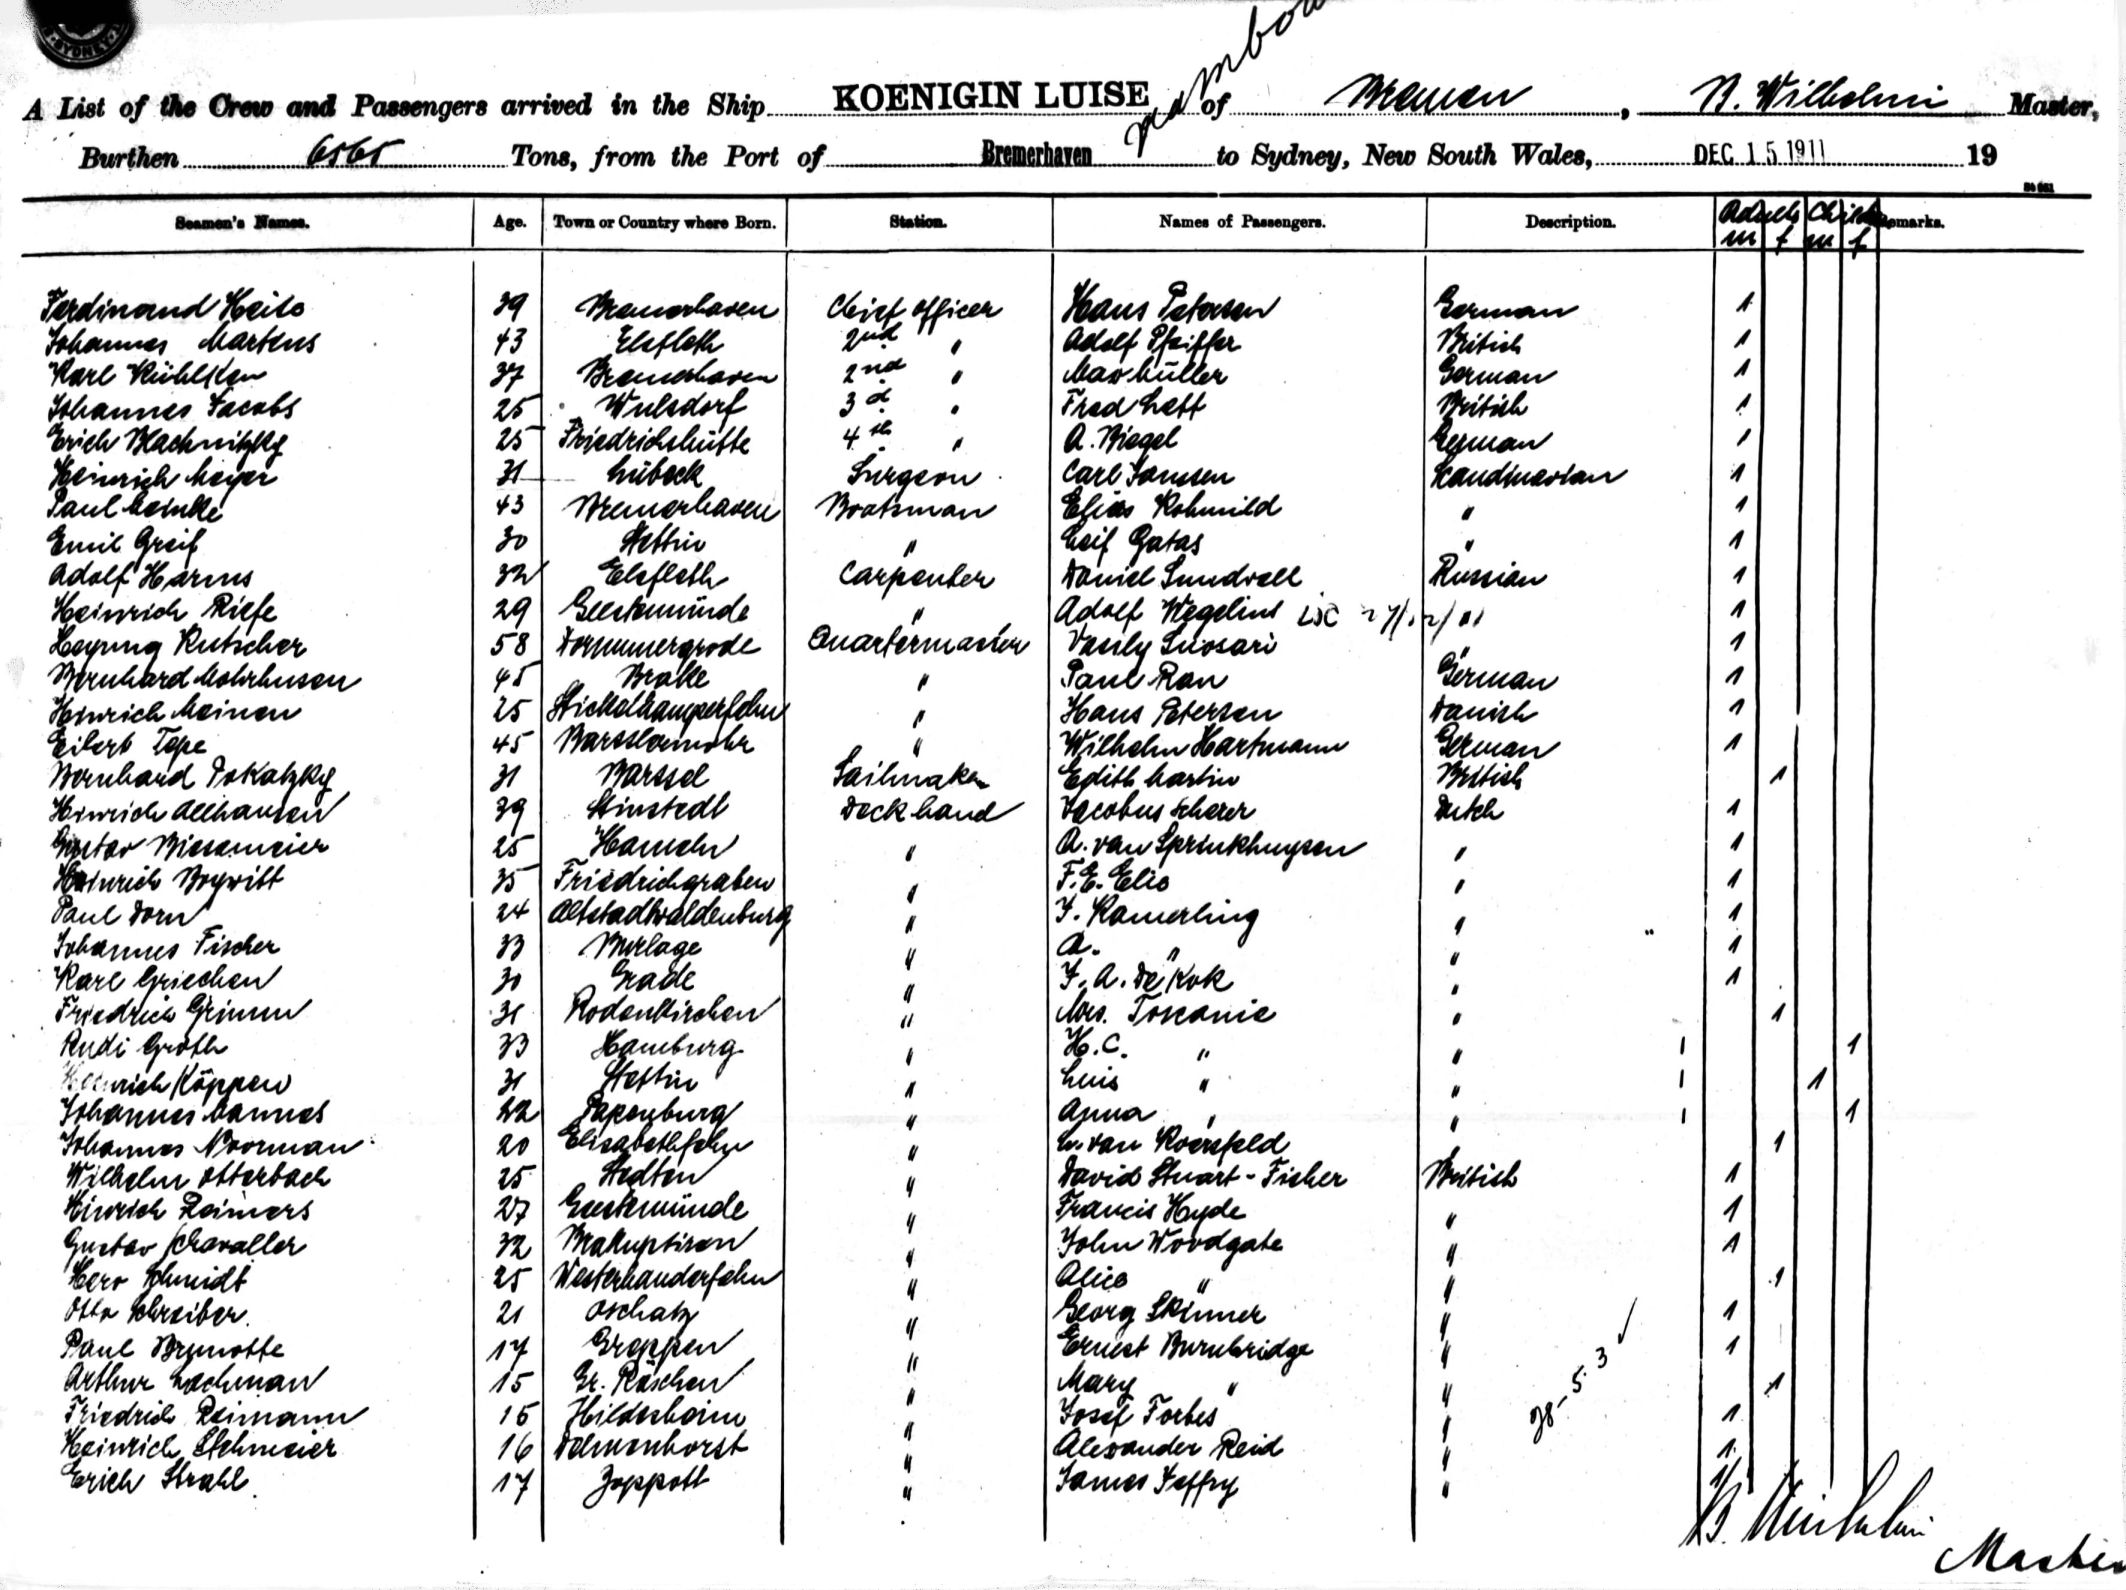 SYDNEY
A List of the Crew and Passengers arrived in the Ship KOENIGIN LUISE of Bremen, Wilhelmi Master,
Burthen 6565 Tons, from the Port of Bremerhaven to Sydney, New South Wales, DEC 15 1911 19
Seamen's Names. Age. Town or Country where Born. Station. Names of Passengers. Description. Adults Child Remarks.
m f m f
Ferdinand 39 Bremerhaven Chief officer Hans Petersen German 1
Johannes Martens 43 Elsfleth 2nd " Adolf Pfeiffer British 1
Karl 37 Bremerhaven 2nd " Max Müller German 1
Johannes Jacobs 25 Wulsdorf 3d " Fred Lett British 1
Erich 25 Friedrichshütte 4th " A. Biegel German 1
Heinrich Meyer 31 Lübeck Surgeon Carl Janssen Scandinavian 1
Paul 43 Bremerhaven Boatsman Elias " 1
Emil Greif 30 Stettin " Leif " 1
Adolf Harms 32 Elsfleth Carpenter Daniel Sundvall Russian 1
Heinrich Riefe 29 Geestemünde " Adolf Wegelius 1
Kutscher 58 Quartermaster Vasily " 1
Bernhard Mohrhusen 45 Brake " Paul Rau German 1
Hinrich Meinen 25 Stickelkamperfehn " Hans Petersen Danish 1
Eilert Tepe 45 " Wilhelm Hartmann German 1
Bernhard Pokatzky 31 Barssel Sailmaker Edith Martin British 1
Hinrich Allhausen 39 Stinstedt Deck hand Jacobus Scherer Dutch 1
Gustav Biesemeier 25 Hameln " A. van Sprinkhuysen " 1
Heinrich Boywitt 35 Friedrichgraben " F. E. " 1
Paul Dorn 24 Altstadtwaldenburg " J. Kamerling " 1
Johannes Fischer 33 Burlage " A. " " 1
Karl Griechen 30 " J. A. De Kok " 1
Friedrich Grimm 31 Rodenkirchen " Mrs. Toscanie " 1
Rudi Groth 33 Hamburg " H. C. " " 1 1
Heinrich Köppen 31 Stettin " Luis " " 1 1
Johannes Mannes 22 Papenburg " Anna " " 1 1
Johannes Noorman 20 Elisabethfehn " van " 1
Wilhelm Otterbach 25 Stedten " David Stuart-Fisher British 1
Hinrich Reimers 27 Geestemünde " Francis Hyde " 1
Gustav Schavaller 32 " John Woodgate " 1
Hero Schmidt 25 Westerhauderfehn " Alice " " 1
Otto Schreiber. 21 Oschatz " Georg Skinner " 1
Paul Brunotte 17 Greppen " Ernest Burnbridge " 1
Arthur Lachman 15 Gr. Räschen " Mary " " 1
Friedrich Reimann 15 Hildesheim " Josef Forbes " 1
Heinrich Stehmeier 16 Delmenhorst " Alexander Reid " 1
Erich Strahl 17 Zoppott " James Jeffry " 1
B. Wilhelmi
Master